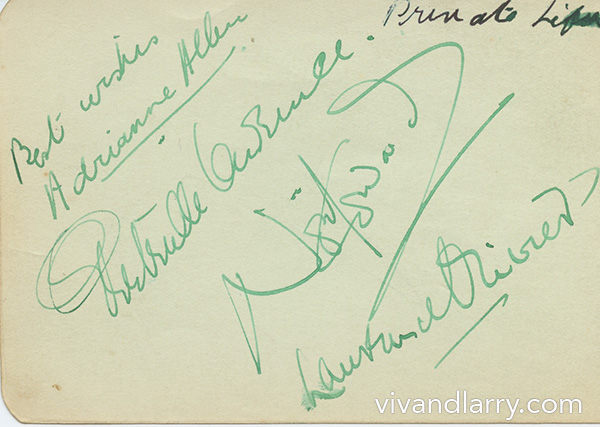 Private Lives
Best wishes
Adrianne Allen
Gertrude Lawrence.
Noël Coward
Laurence Olivier
vivandlarry.com